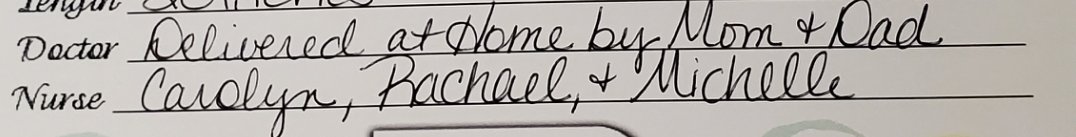 Length
Doctor Delivered at Home by Mom + Dad
Nurse Carolyn, Rachael, + Michelle